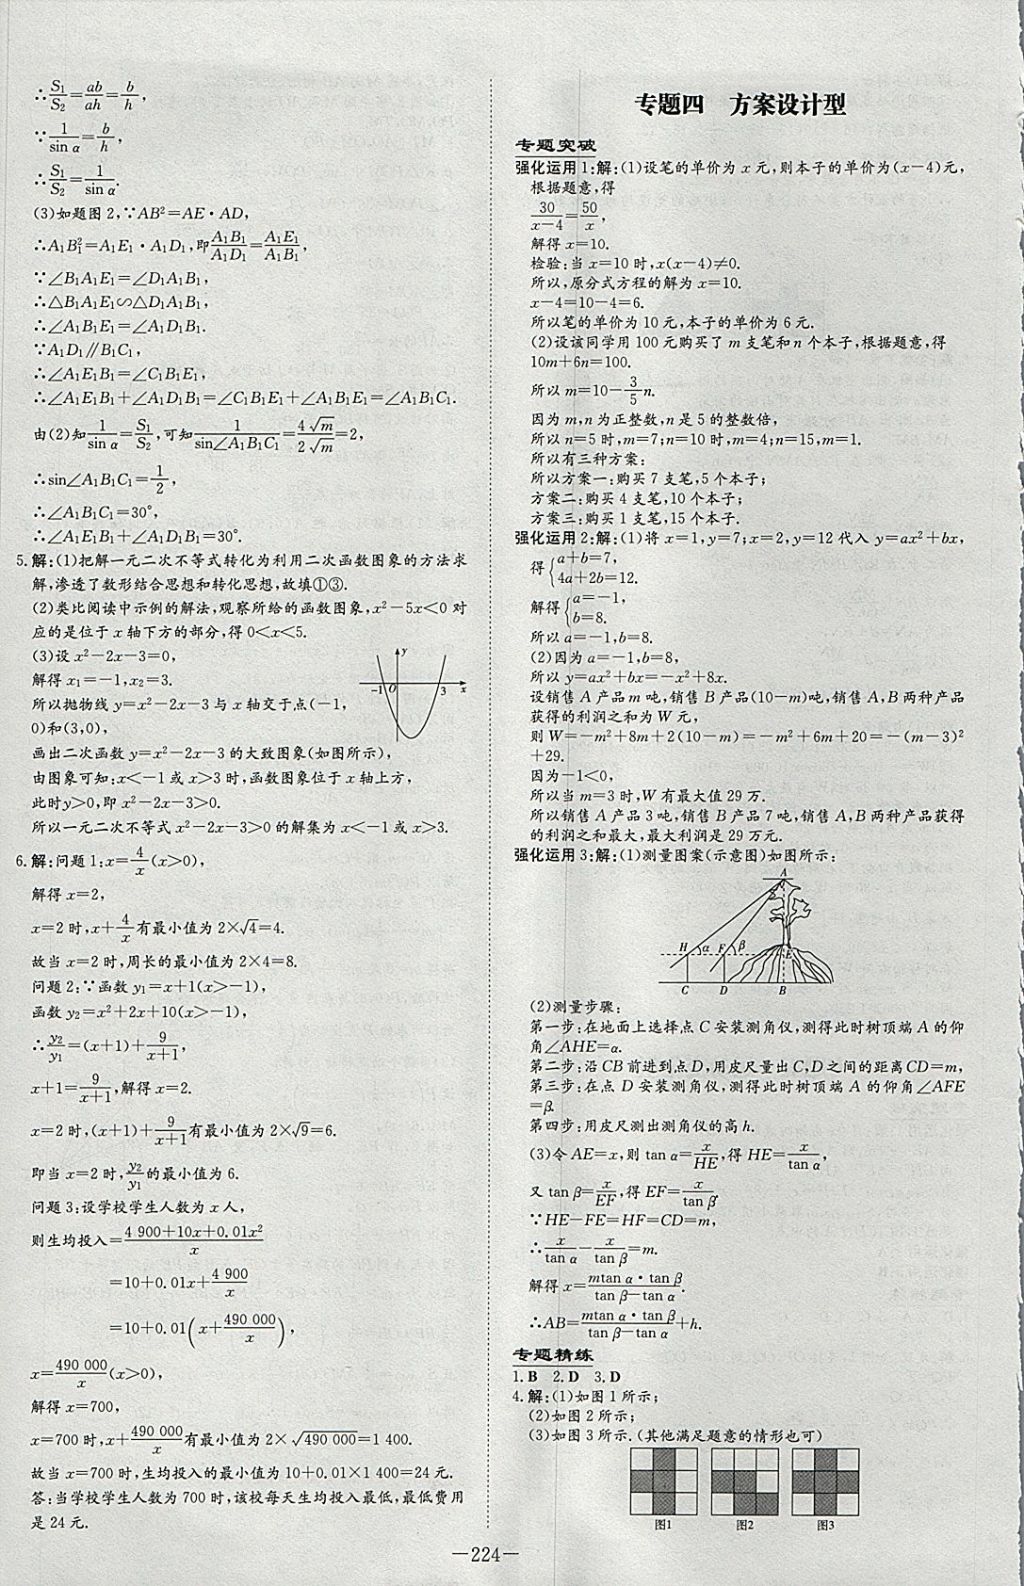 ∴S₁/S₂=ab/ah=b/h,
∵1/sin α=b/h,
∴S₁/S₂=1/sin α.
(3)如题图2,∵AB²=AE·AD,
∴A₁B₁²=A₁E₁·A₁D₁,即A₁B₁/A₁D₁=A₁E₁/A₁B₁,
∵∠B₁A₁E₁=∠D₁A₁B₁,
∴△B₁A₁E₁∽△D₁A₁B₁,
∴∠A₁B₁E₁=∠A₁D₁B₁.
∵A₁D₁∥B₁C₁,
∴∠A₁E₁B₁=∠C₁B₁E₁,
∴∠A₁E₁B₁+∠A₁D₁B₁=∠C₁B₁E₁+∠A₁B₁E₁=∠A₁B₁C₁.
由(2)知1/sin α=S₁/S₂,可知1/sin∠A₁B₁C₁=4√m/2√m=2,
∴sin∠A₁B₁C₁=1/2,
∴∠A₁B₁C₁=30°,
∴∠A₁E₁B₁+∠A₁D₁B₁=30°.
5.解:(1)把解一元二次不等式转化为利用二次函数图象的方法求
解,渗透了数形结合思想和转化思想,故填①③.
(2)类比阅读中示例的解法,观察所给的函数图象,x²-5x<0对
应的是位于x轴下方的部分,得0<x<5.
(3)设x²-2x-3=0,
解得x₁=-1,x₂=3.
所以抛物线y=x²-2x-3与x轴交于点(-1,
0)和(3,0),
y
-1 O 3 x
画出二次函数y=x²-2x-3的大致图象(如图所示),
由图象可知:x<-1或x>3时,函数图象位于x轴上方,
此时y>0,即x²-2x-3>0.
所以一元二次不等式x²-2x-3>0的解集为x<-1或x>3.
6.解:问题1:x=4/x(x>0),
解得x=2,
x=2时,x+4/x有最小值为2×√4=4.
故当x=2时,周长的最小值为2×4=8.
问题2:∵函数y₁=x+1(x>-1),
函数y₂=x²+2x+10(x>-1),
∴y₂/y₁=(x+1)+9/(x+1),
x+1=9/(x+1),解得x=2.
x=2时,(x+1)+9/(x+1)有最小值为2×√9=6.
即当x=2时,y₂/y₁的最小值为6.
问题3:设学校学生人数为x人,
则生均投入=(4 900+10x+0.01x²)/x
=10+0.01x+4 900/x
=10+0.01(x+490 000/x),
x=490 000/x(x>0),
解得x=700,
x=700时,x+490 000/x有最小值为2×√490 000=1 400.
故当x=700时,生均投入的最小值为10+0.01×1 400=24元.
答:当学校学生人数为700时,该校每天生均投入最低,最低费用
是24元.
专题四 方案设计型
专题突破
强化运用1:解:(1)设笔的单价为x元,则本子的单价为(x-4)元,
根据题意,得
30/(x-4)=50/x,
解得x=10.
检验:当x=10时,x(x-4)≠0.
所以,原分式方程的解为x=10.
x-4=10-4=6.
所以笔的单价为10元,本子的单价为6元.
(2)设该同学用100元购买了m支笔和n个本子,根据题意,得
10m+6n=100.
所以m=10-3/5n.
因为m,n为正整数,n是5的整数倍,
所以n=5时,m=7;n=10时,m=4;n=15,m=1.
所以有三种方案:
所以方案一:购买7支笔,5个本子;
方案二:购买4支笔,10个本子;
方案三:购买1支笔,15个本子.
强化运用2:解:(1)将x=1,y=7;x=2,y=12代入y=ax²+bx,
得{a+b=7,
4a+2b=12.
解得{a=-1,
b=8.
所以a=-1,b=8.
(2)因为a=-1,b=8,
所以y=ax²+bx=-x²+8x.
设销售A产品m吨,销售B产品(10-m)吨,销售A,B两种产品
获得的利润之和为W元,
则W=-m²+8m+2(10-m)=-m²+6m+20=-(m-3)²
+29.
因为-1<0,
所以当m=3时,W有最大值29万.
所以销售A产品3吨,销售B产品7吨,销售A,B两种产品获得
的利润之和最大,最大利润是29万元.
强化运用3:解:(1)测量图案(示意图)如图所示:
A
H α F β E
C D B
(2)测量步骤:
第一步:在地面上选择点C安装测角仪,测得此时树顶端A的仰
角∠AHE=α.
第二步:沿CB前进到点D,用皮尺量出C,D之间的距离CD=m,
第三步:在点D安装测角仪,测得此时树顶端A的仰角∠AFE
=β.
第四步:用皮尺测出测角仪的高h.
(3)令AE=x,则tan α=x/HE,得HE=x/tan α,
又tan β=x/EF,得EF=x/tan β.
∵HE-FE=HF=CD=m,
∴x/tan α-x/tan β=m.
解得x=mtan α·tan β/(tan β-tan α).
∴AB=mtan α·tan β/(tan β-tan α)+h.
专题精练
1.B 2.D 3.D
4.解:(1)如图1所示;
(2)如图2所示;
(3)如图3所示.(其他满足题意的情形也可)
图1 图2 图3
—224—